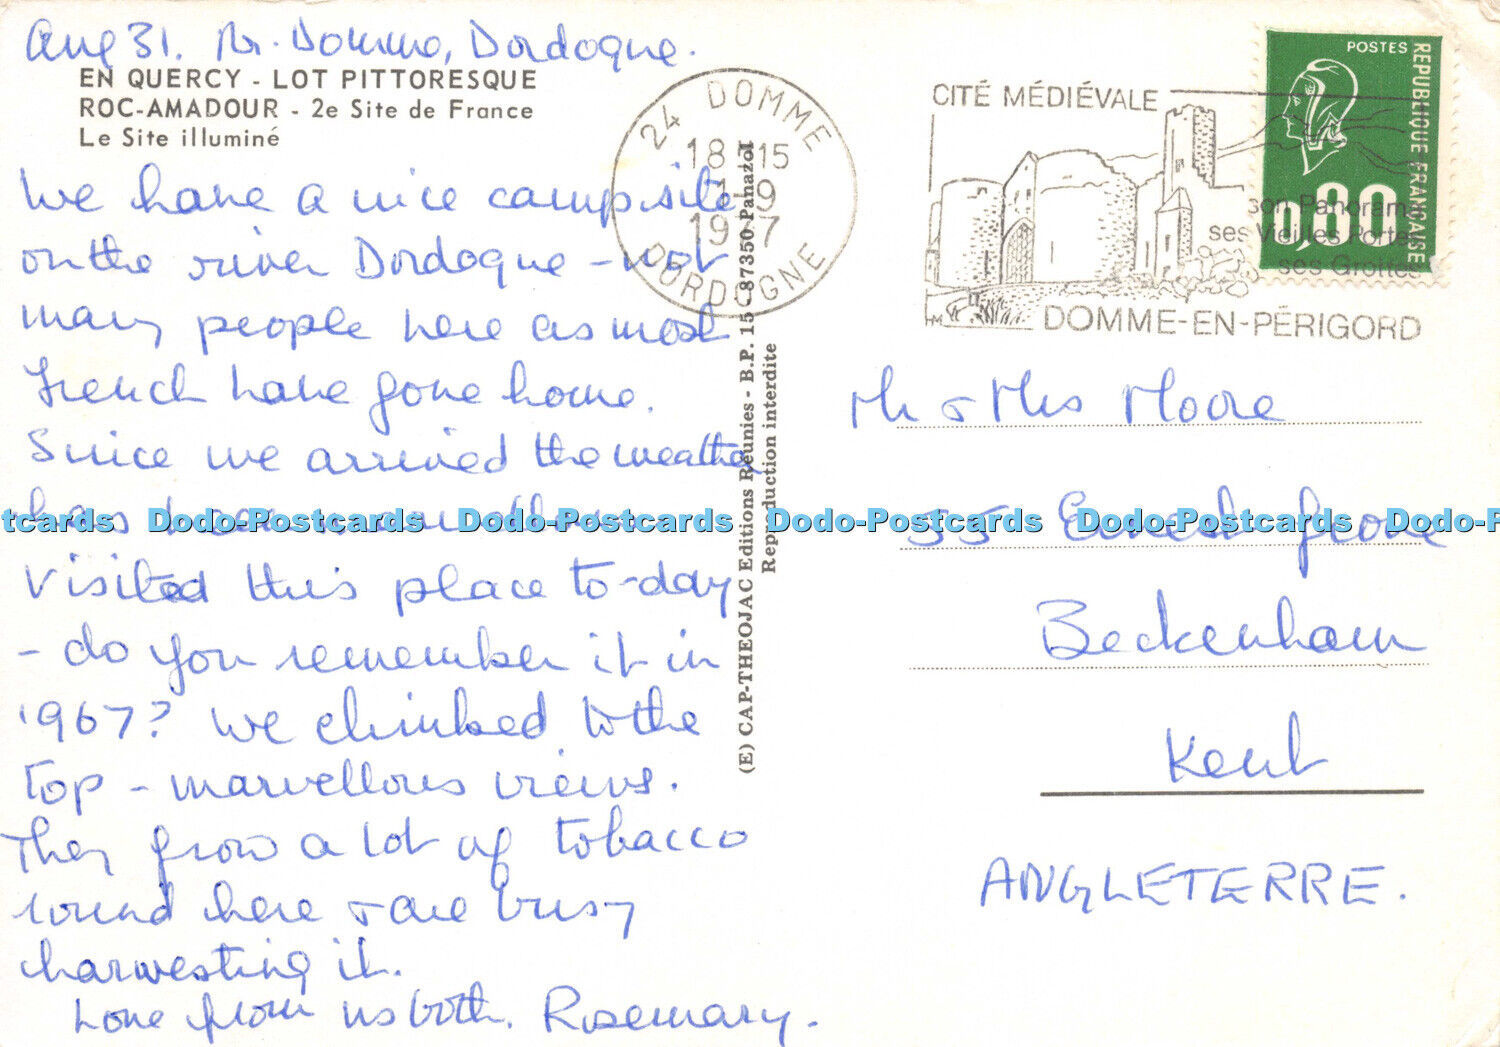 Aug 31. Nr. Domme, Dordogne.
EN QUERCY - LOT PITTORESQUE
ROC-AMADOUR - 2e Site de France
Le Site illuminé
We have a nice camp site
on the river Dordogne - not
many people here as most
French have gone home.
Since we arrived the weather
has been
Visited this place to-day
- do you remember it in
1967? We climbed to the
top - marvellous views.
They grow a lot of tobacco
round here & are busy
harvesting it.
Love from us both. Rosemary.
24 DOMME
18 H 15
1-9
1977
DORDOGNE
(E) CAP-THEOJAC Editions Réunies - B.P. 15 - 87350 Panazol
Reproduction interdite
CITÉ MÉDIÉVALE
son Panorama
ses Vieilles Portes
ses Grottes
HM
DOMME-EN-PÉRIGORD
POSTES
REPUBLIQUE FRANÇAISE
0,80
Mr & Mrs Moore
55 Grove
Beckenham
Kent
ANGLETERRE.
tcards Dodo-Postcards Dodo-Postcards Dodo-Postcards Dodo-Postcards Dodo-P